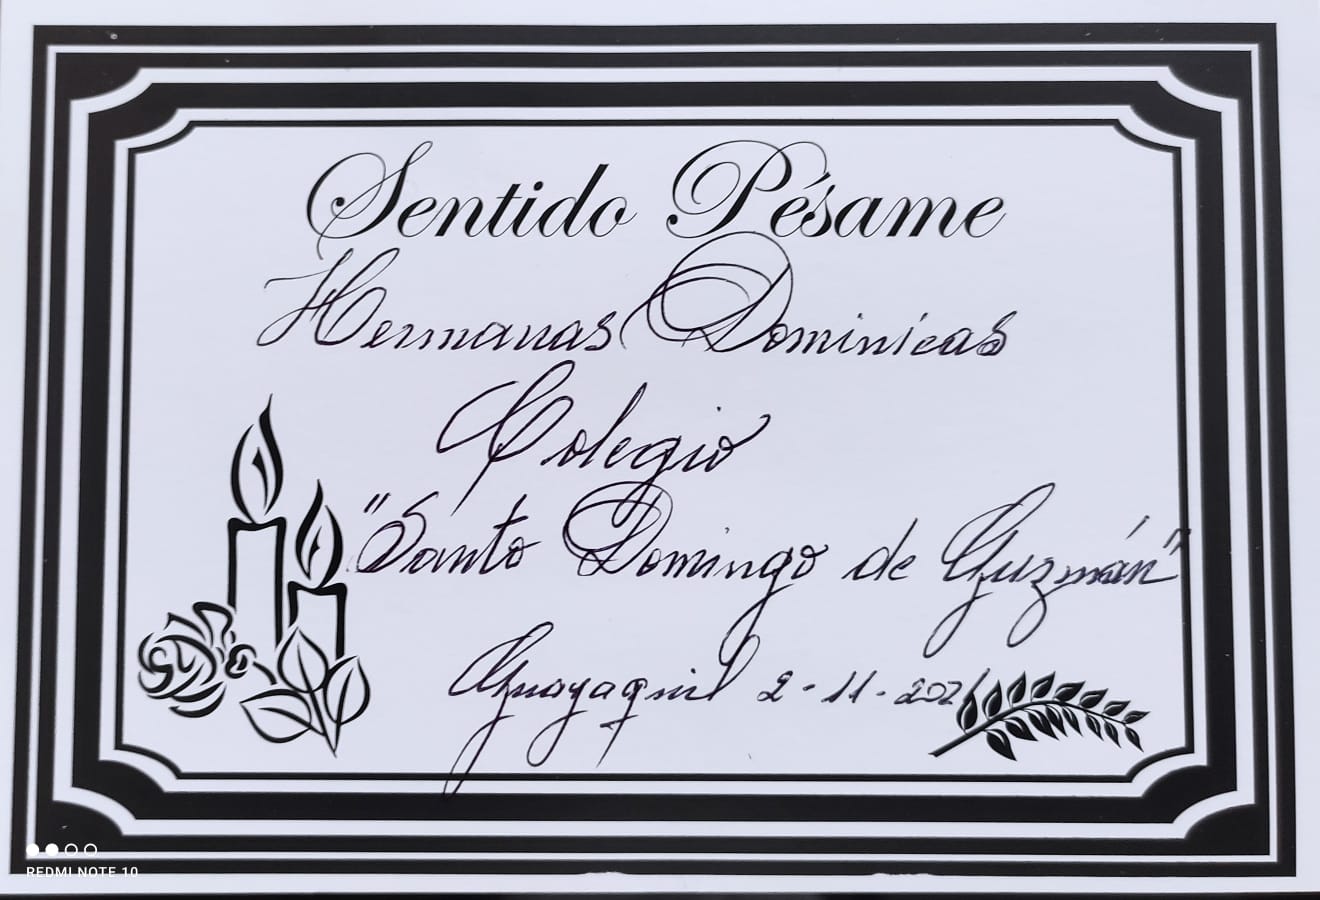 Sentido Pésame
Hermanas Dominicas
Colegio
"Santo Domingo de Guzmán"
Guayaquil 2-11-2021
REDMI NOTE 10